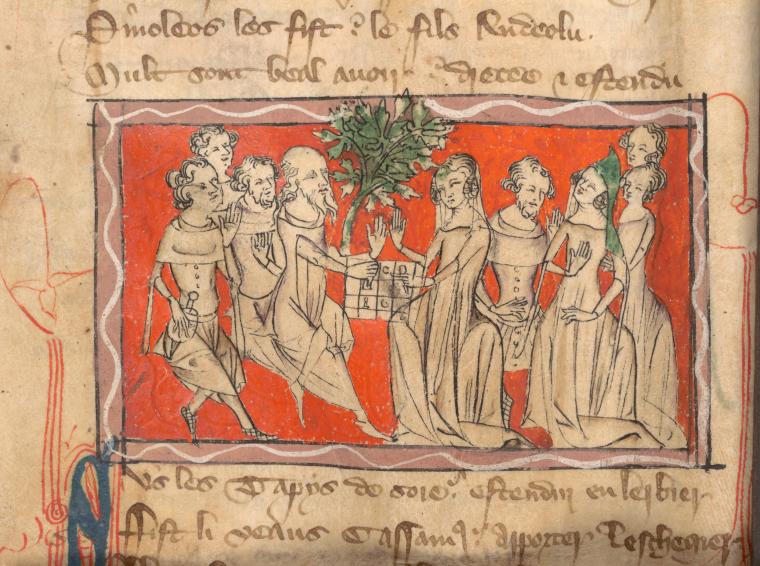 Emoleos les fist ⁊ le fils Andeolu.
Mult sont beal auoir ⁊ dieces ⁊ estendu
Sus les Tapys de soie estendu en lerbier
Fist li veaus Cassamꝰ apporter Leschequier